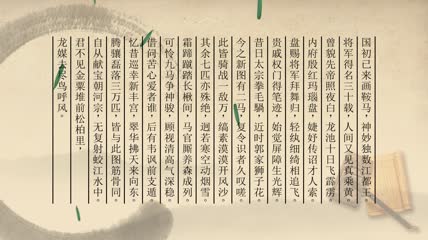 国初已来画鞍马，神妙独数江都王。
将军得名三十载，人间又见真乘黄。
曾貌先帝照夜白，龙池十日飞霹雳。
内府殷红玛瑙盘，婕妤传诏才人索。
盘赐将军拜舞归，轻纨细绮相追飞。
贵戚权门得笔迹，始觉屏障生光辉。
昔日太宗拳毛騧，近时郭家狮子花。
今之新图有二马，复令识者久叹嗟。
此皆骑战一敌万，缟素漠漠开风沙。
其余七匹亦殊绝，迥若寒空动烟雪。
霜蹄蹴踏长楸间，马官厮养森成列。
可怜九马争神骏，顾视清高气深稳。
借问苦心爱者谁，后有韦讽前支遁。
忆昔巡幸新丰宫，翠华拂天来向东。
腾骧磊落三万匹，皆与此图筋骨同。
自从献宝朝河宗，无复射蛟江水中。
君不见金粟堆前松柏里，
龙媒去尽鸟呼风。